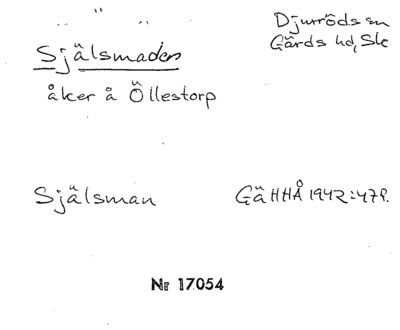 Djurröds sn
Gärds hd, Sk
Själsmaden
åker å Öllestorp
Själsman GäHHÅ 1942:479.
Nr 17054